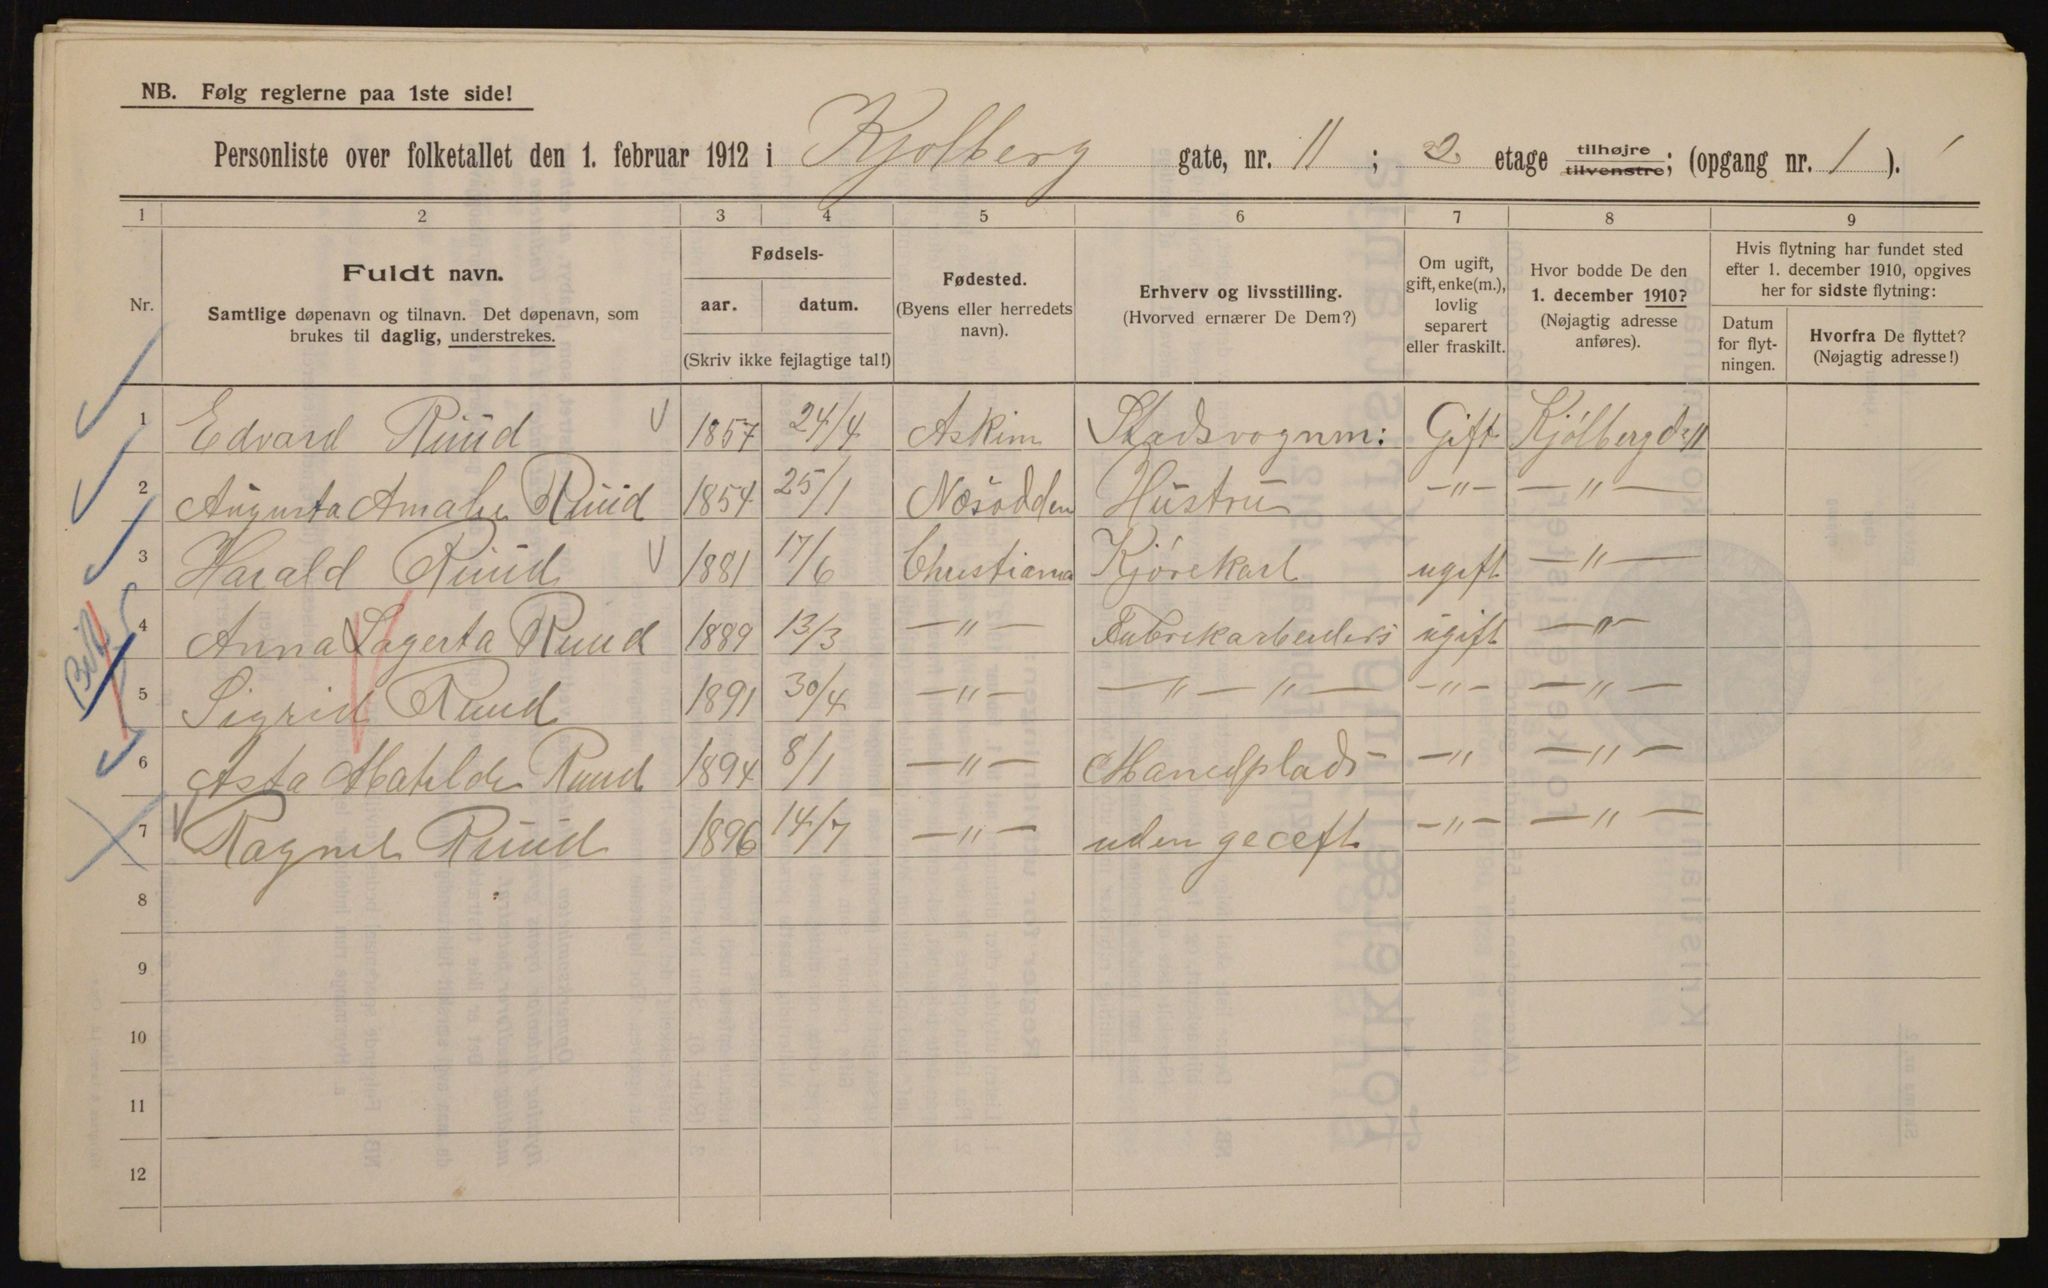 NB. Følg reglerne paa 1ste side!
Personliste over folketallet den 1. februar 1912 i Kjølberg gate, nr. 11 ; 2 etage tilhøjre tilvenstre; (opgang nr. 1 ).
1 2 3 4 5 6 7 8 9
Nr.
Fuldt navn.
Samtlige døpenavn og tilnavn. Det døpenavn, som
brukes til daglig, understrekes.
Fødsels-
aar. datum.
(Skriv ikke fejlagtige tal!)
Fødested.
(Byens eller herredets
navn).
Erhverv og livsstilling.
(Hvorved ernærer De Dem?)
Om ugift,
gift, enke(m.),
lovlig
separert
eller fraskilt.
Hvor bodde De den
1. december 1910?
(Nøjagtig adresse
anføres).
Hvis flytning har fundet sted
efter 1. december 1910, opgives
her for sidste flytning:
Datum
for flyt-
ningen.
Hvorfra De flyttet?
(Nøjagtig adresse!)
1 Edvard Ruud 1857 24/4 Askim Stadsvognm: Gift Kjølbergd. 11
2 Augusta Amalie Ruud 1854 25/1 Næsodden Hustru —"— —"—
3 Harald Ruud 1881 17/6 Christiania Kjørekarl ugift —"—
4 Anna Lagerta Ruud 1889 13/3 —"— Fabrekarbeiders ugift —"—
5 Sigrid Ruud 1891 30/4 —"— —"—"— —"— —"—
6 Asta Matilde Ruud 1894 8/1 —"— —" —"—
7 Ragnel Ruud 1896 14/7 —"— uden geceft —"— —"—
8
9
10
11
12